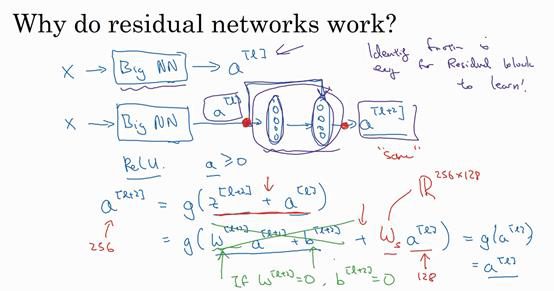 Why do residual networks work?
X → Big NN → a^[l]
Identity function is
easy for Residual block
to learn!
X → Big NN → a^[l] → → a^[l+2]
"same"
ReLU. a ≥ 0
ℝ^256×128
a^[l+2] = g(z^[l+2] + a^[l])
256
= g(W^[l+2] a^[l+1] + b^[l+2] + W_s a^[l]) = g(a^[l])
= a^[l]
If W^[l+2] = 0, b^[l+2] = 0
128